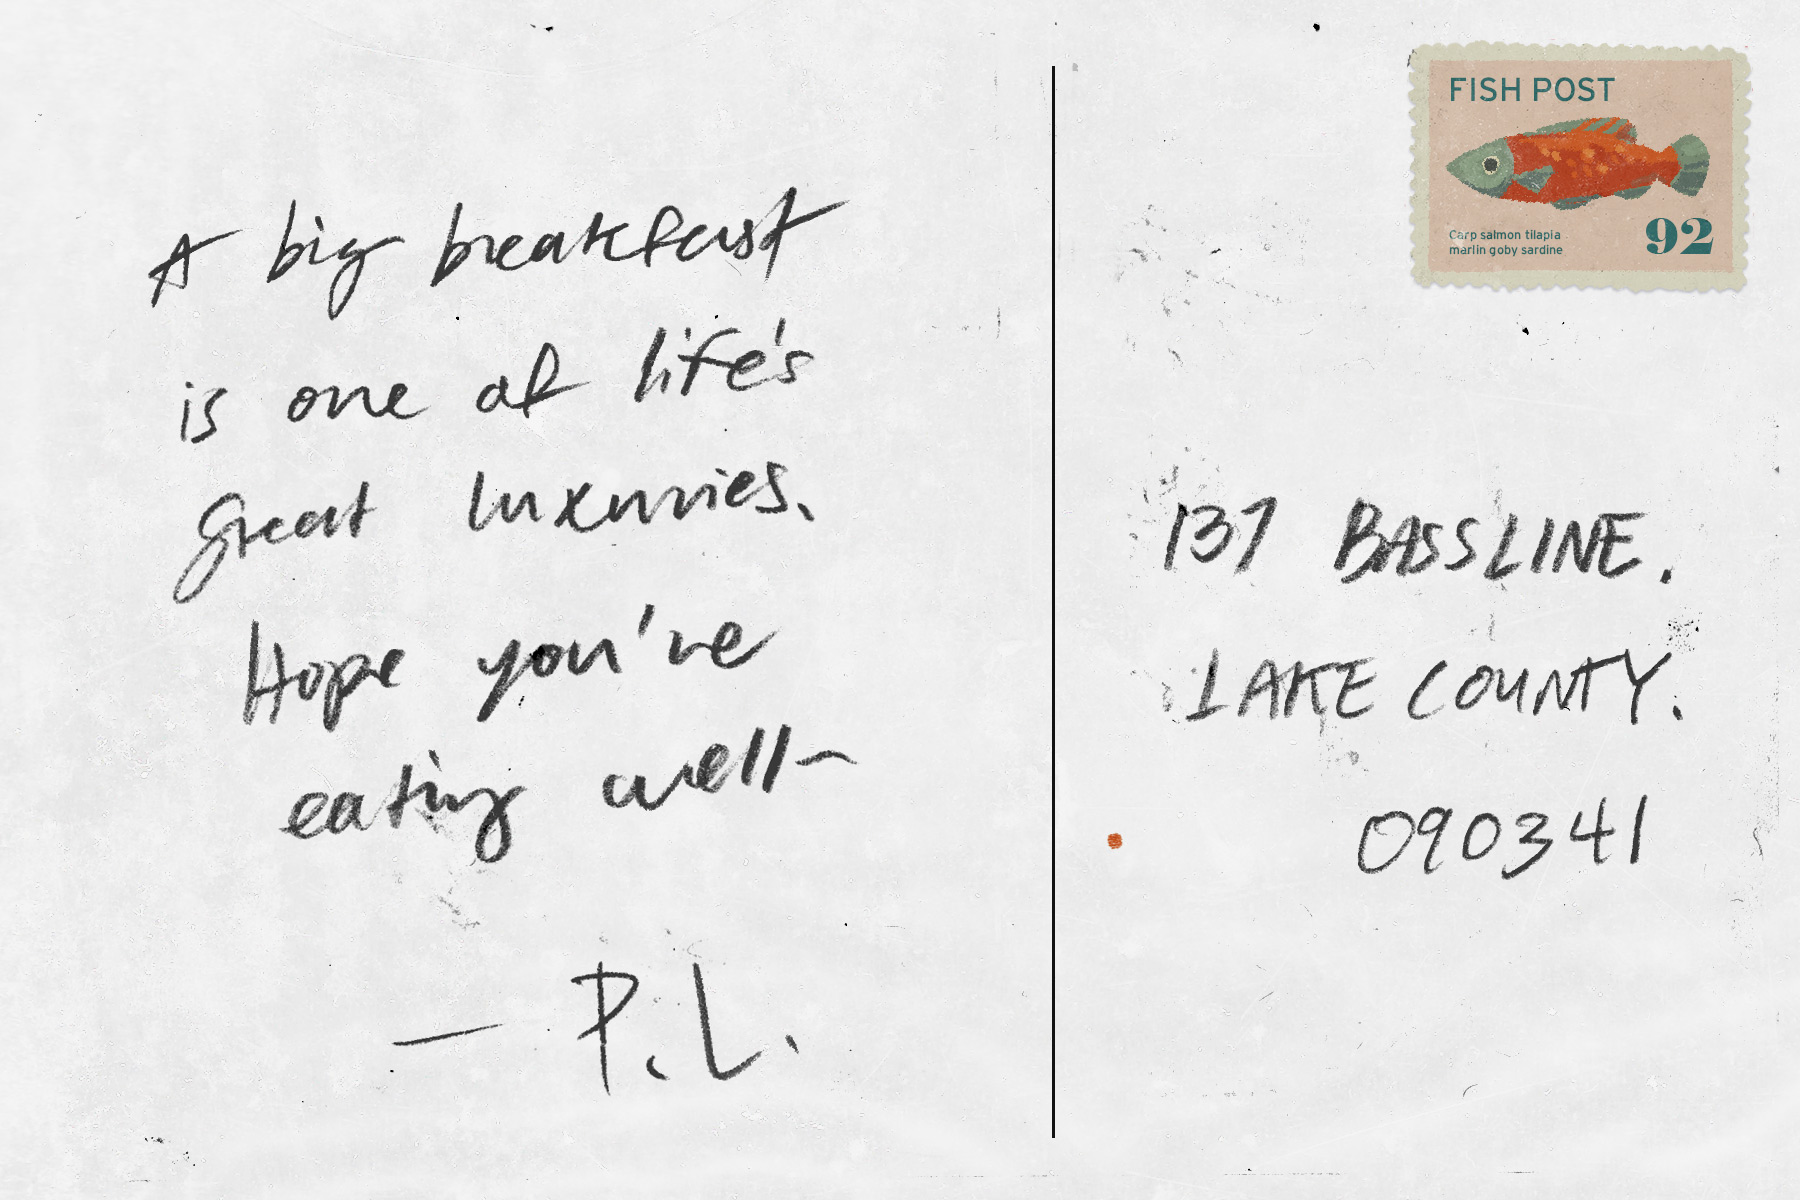 A big breakfast
is one of life's
great luxuries.
Hope you've
eating well~
— P.L.
FISH POST
Carp salmon tilapia
marlin goby sardine
92
137 BASSLINE.
LAKE COUNTY.
090341